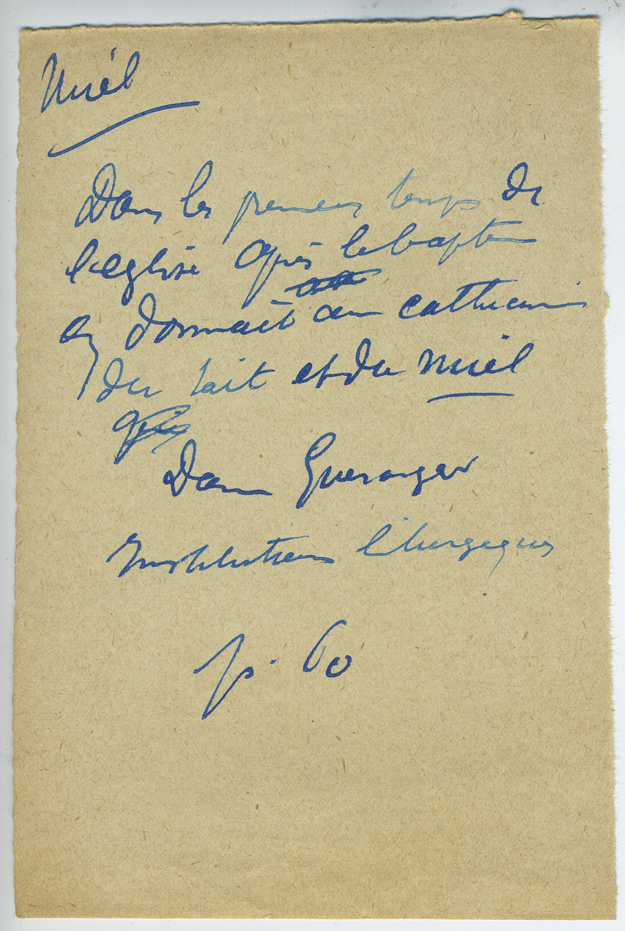 Miel
Dans les premiers temps de
l'eglise après le baptême
on donnait au
du lait et du miel
Dom Gueranger
Institutions liturgiques
p. 60